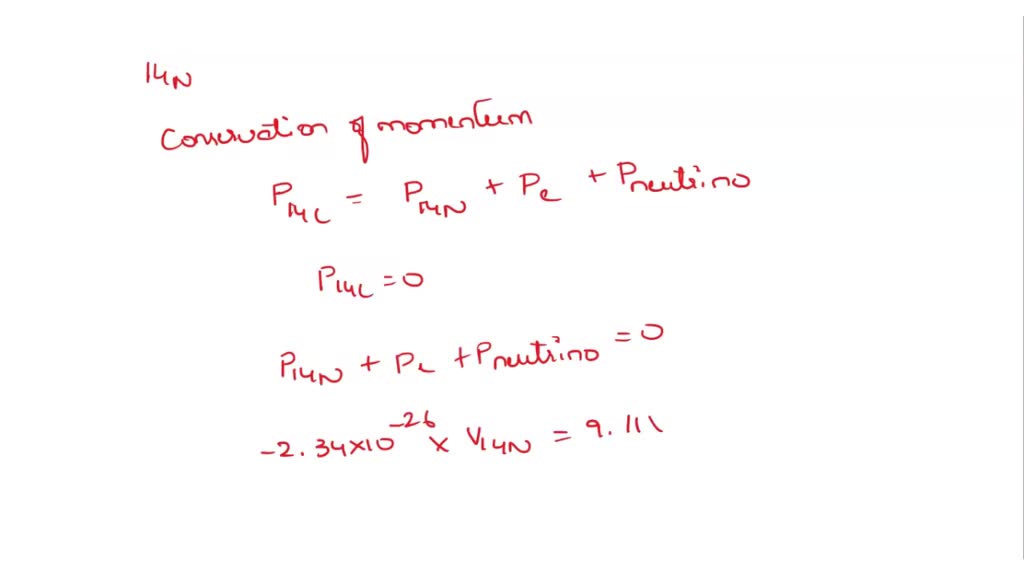 14N
Conservation of momentum
P14C = P14N + Pe + Pneutrino
P14C = 0
P14N + Pe + Pneutrino = 0
-2.34×10^-26 × V14N = 9.111